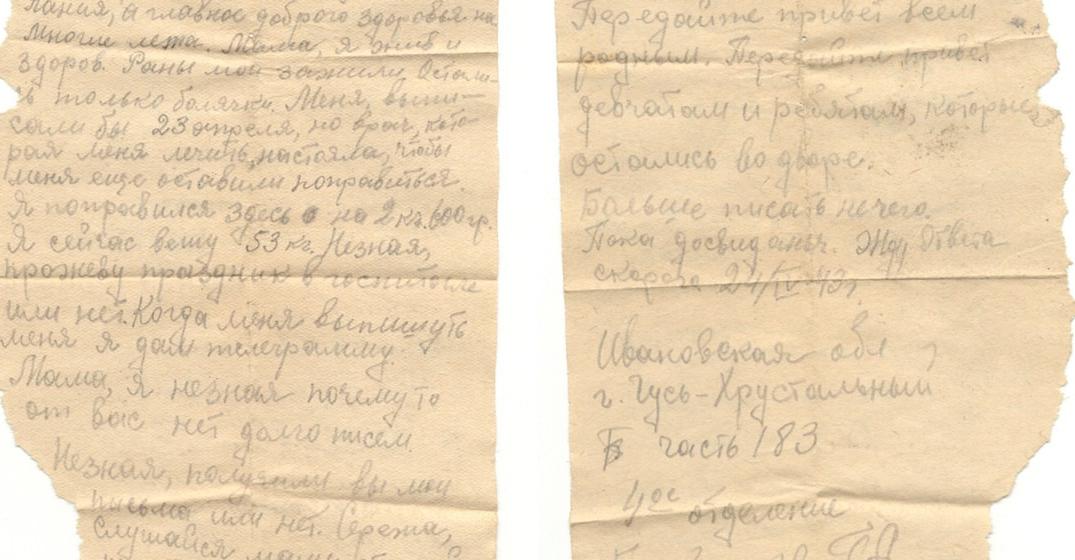 лания, а главное доброго здоровья на
многие лета. Мама, я жив и
здоров. Раны мои зажили. Остали-
сь только болячки. Меня, выпи-
сали бы 23 апреля, но врач, кото-
рая меня лечить, настояла, чтобы
меня еще оставили поправиться.
Я поправился здесь на 2 кг. 600 гр.
Я сейчас вешу 53 кг. Незная,
проживу праздник в госпитале
или нет. Когда меня выпишуть
меня я дам телеграмму.
Мама, я незная почему то
от вас нет долго писем.
Незная, получили вы мои
письма или нет. Сережа,
слушайся мами
Передайте привет всем
родным. Передайте привет
девчатам и ребятам, которые
остались во дворе.
Больше писать нечего.
Пока досвиданья. Жду ответа
скорога 24/IV-43г.
Ивановская обл
г. Гусь-Хрустальный
часть 183
4ое отделение